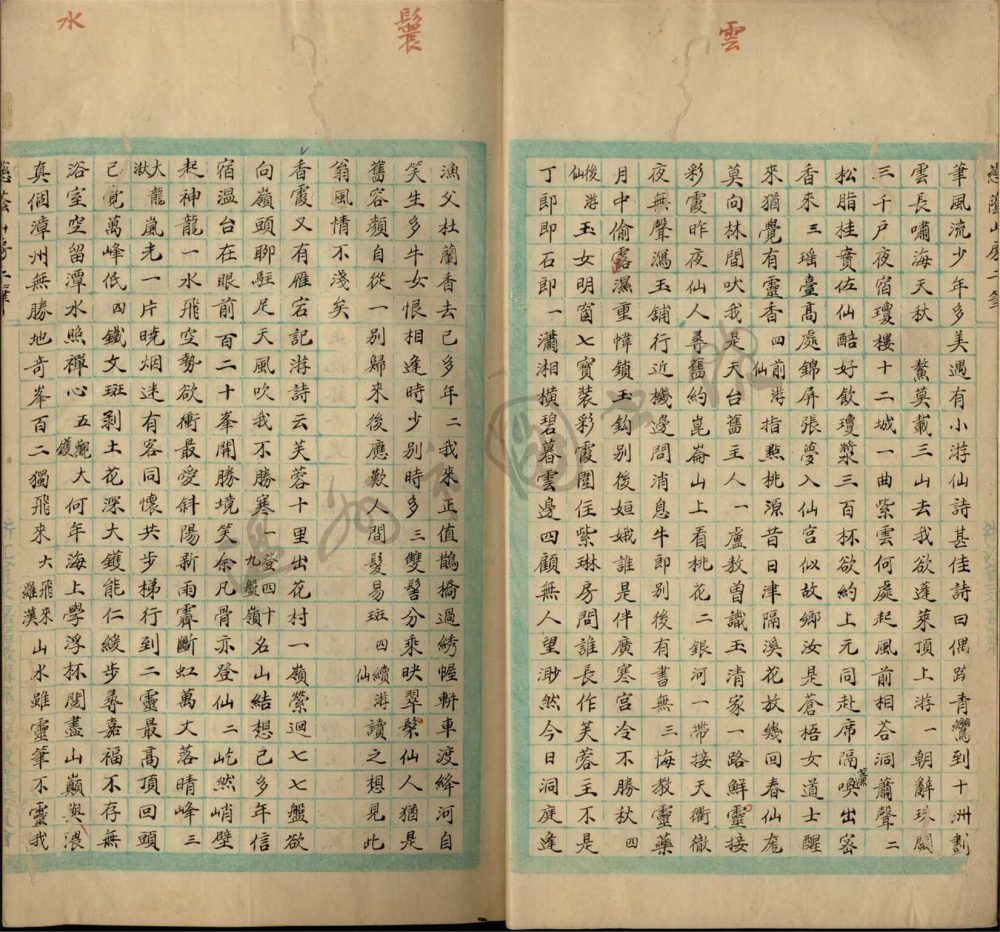 雲
筆風流少年多美遇有小游仙詩甚佳詩曰偶跨青鸞到十洲劃
雲長嘯海天秋鰲莫載三山去我欲蓬萊頂上游一朝辭珠闕
三千户夜宿瓊樓十二城一曲紫雲何處起風前相答洞蕭聲二
松脂桂賁佐仙醅好飲瓊漿三百杯欲約上元同赴席隔簾喚出宻
香來三瑶臺髙處錦屏張夢入仙宫似故卿汝是蒼梧女道士醒
來猶覺有靈香四前游仙指㸃桃源昔日津隔溪花放幾回春仙厖
莫向林間吠我是天台舊主人一盧敖曽識玉清家一路鮮靈接
彩霞昨夜仙人尋舊約崑崙山上看桃花二銀河一帶接天衢徹
夜無聲漏玉鋪行近機邊問消息牛即别後有書無三悔教靈藥
月中偷露濕重幃鎖玉鈎别後姮娥誰是伴廣寒宫冷不勝秋四
後游仙玉女明窗七寳装彩霞閣住紫琳房問誰長作芙蓉主不是
丁即即石即一瀟湘横碧暮雲邊四顧無人望渺然今日洞庭逢
鬟
水
漁父杜蘭香去已多年二我來正值鵲橋過綉幄軿車渡絳河自
笑生多牛女恨相逢時少别時多三雙鬟分乘映翠槃仙人猶是
舊容顔自從一别歸來後應歎人間髮易斑四續游仙讀之想見此
翁風情不淺矣
香霞又有雁宕記游詩云芙蓉十里出花村一嶺縈迴七七盤欲
向嶺頭聊駐足天風吹我不勝寒一登四十九盤嶺名山結想已多年信
宿温台在眼前百二十峯開勝境笑余凡骨亦登仙二屹然峭壁
起神龍一水飛空勢欲衝最愛斜陽新雨霽斷虹萬丈落晴峰三
大龍湫嵐光一片曉烟迷有客同懷共步梯行到二靈最髙頂回頭
已覺萬峰低四鐵文斑剥土花深大鑊能仁緩步尋嘉福不存無
浴室空留潭水照禪心五觀大鑊何年海上學浮杯閲盡山巔與澴
真個漳州無勝地竒峯百二獨飛來六飛來羅漢山水雖靈筆不靈我